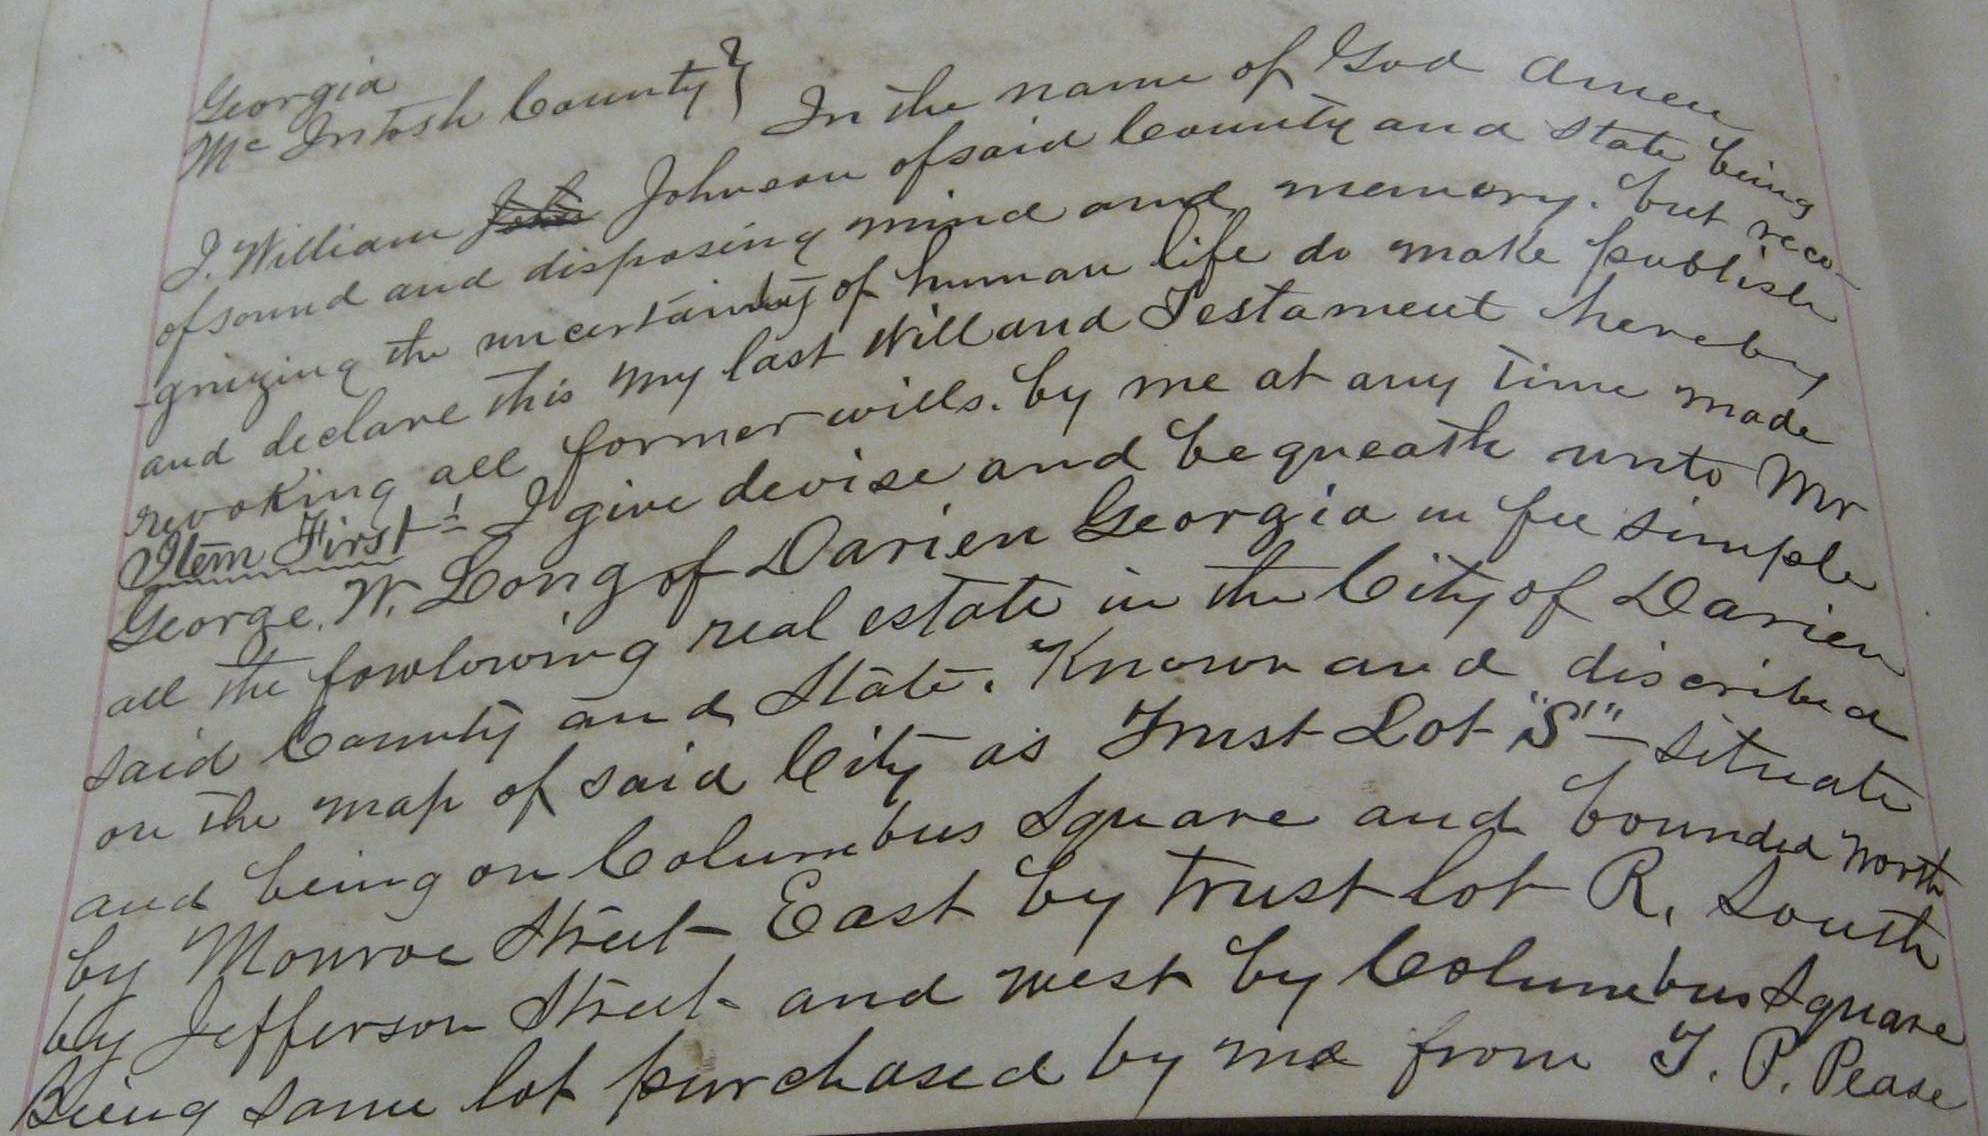 Georgia
Mc Intosh County } In the name of God Amen
I. William John Johnson of said County and State being
of sound and disposing mind and memory. but reco-
-gnizing the uncertainty of human life do make publish
and declare this my last Will and Testament hereby
revoking all former wills. by me at any time made
Item First! I give devise and bequeath unto Mr
George. W. Long of Darien Georgia in fee simple
all the fowlowing real estate in the City of Darien
said County and State. Known and discribed
on the map of said City as Trust Lot "S" - situate
and being on Columbus Square and bounded North
by Monroe Street East by trust lot R, South
by Jefferson Street and west by Columbus Square
Being same lot purchased by me from T. P. Pease